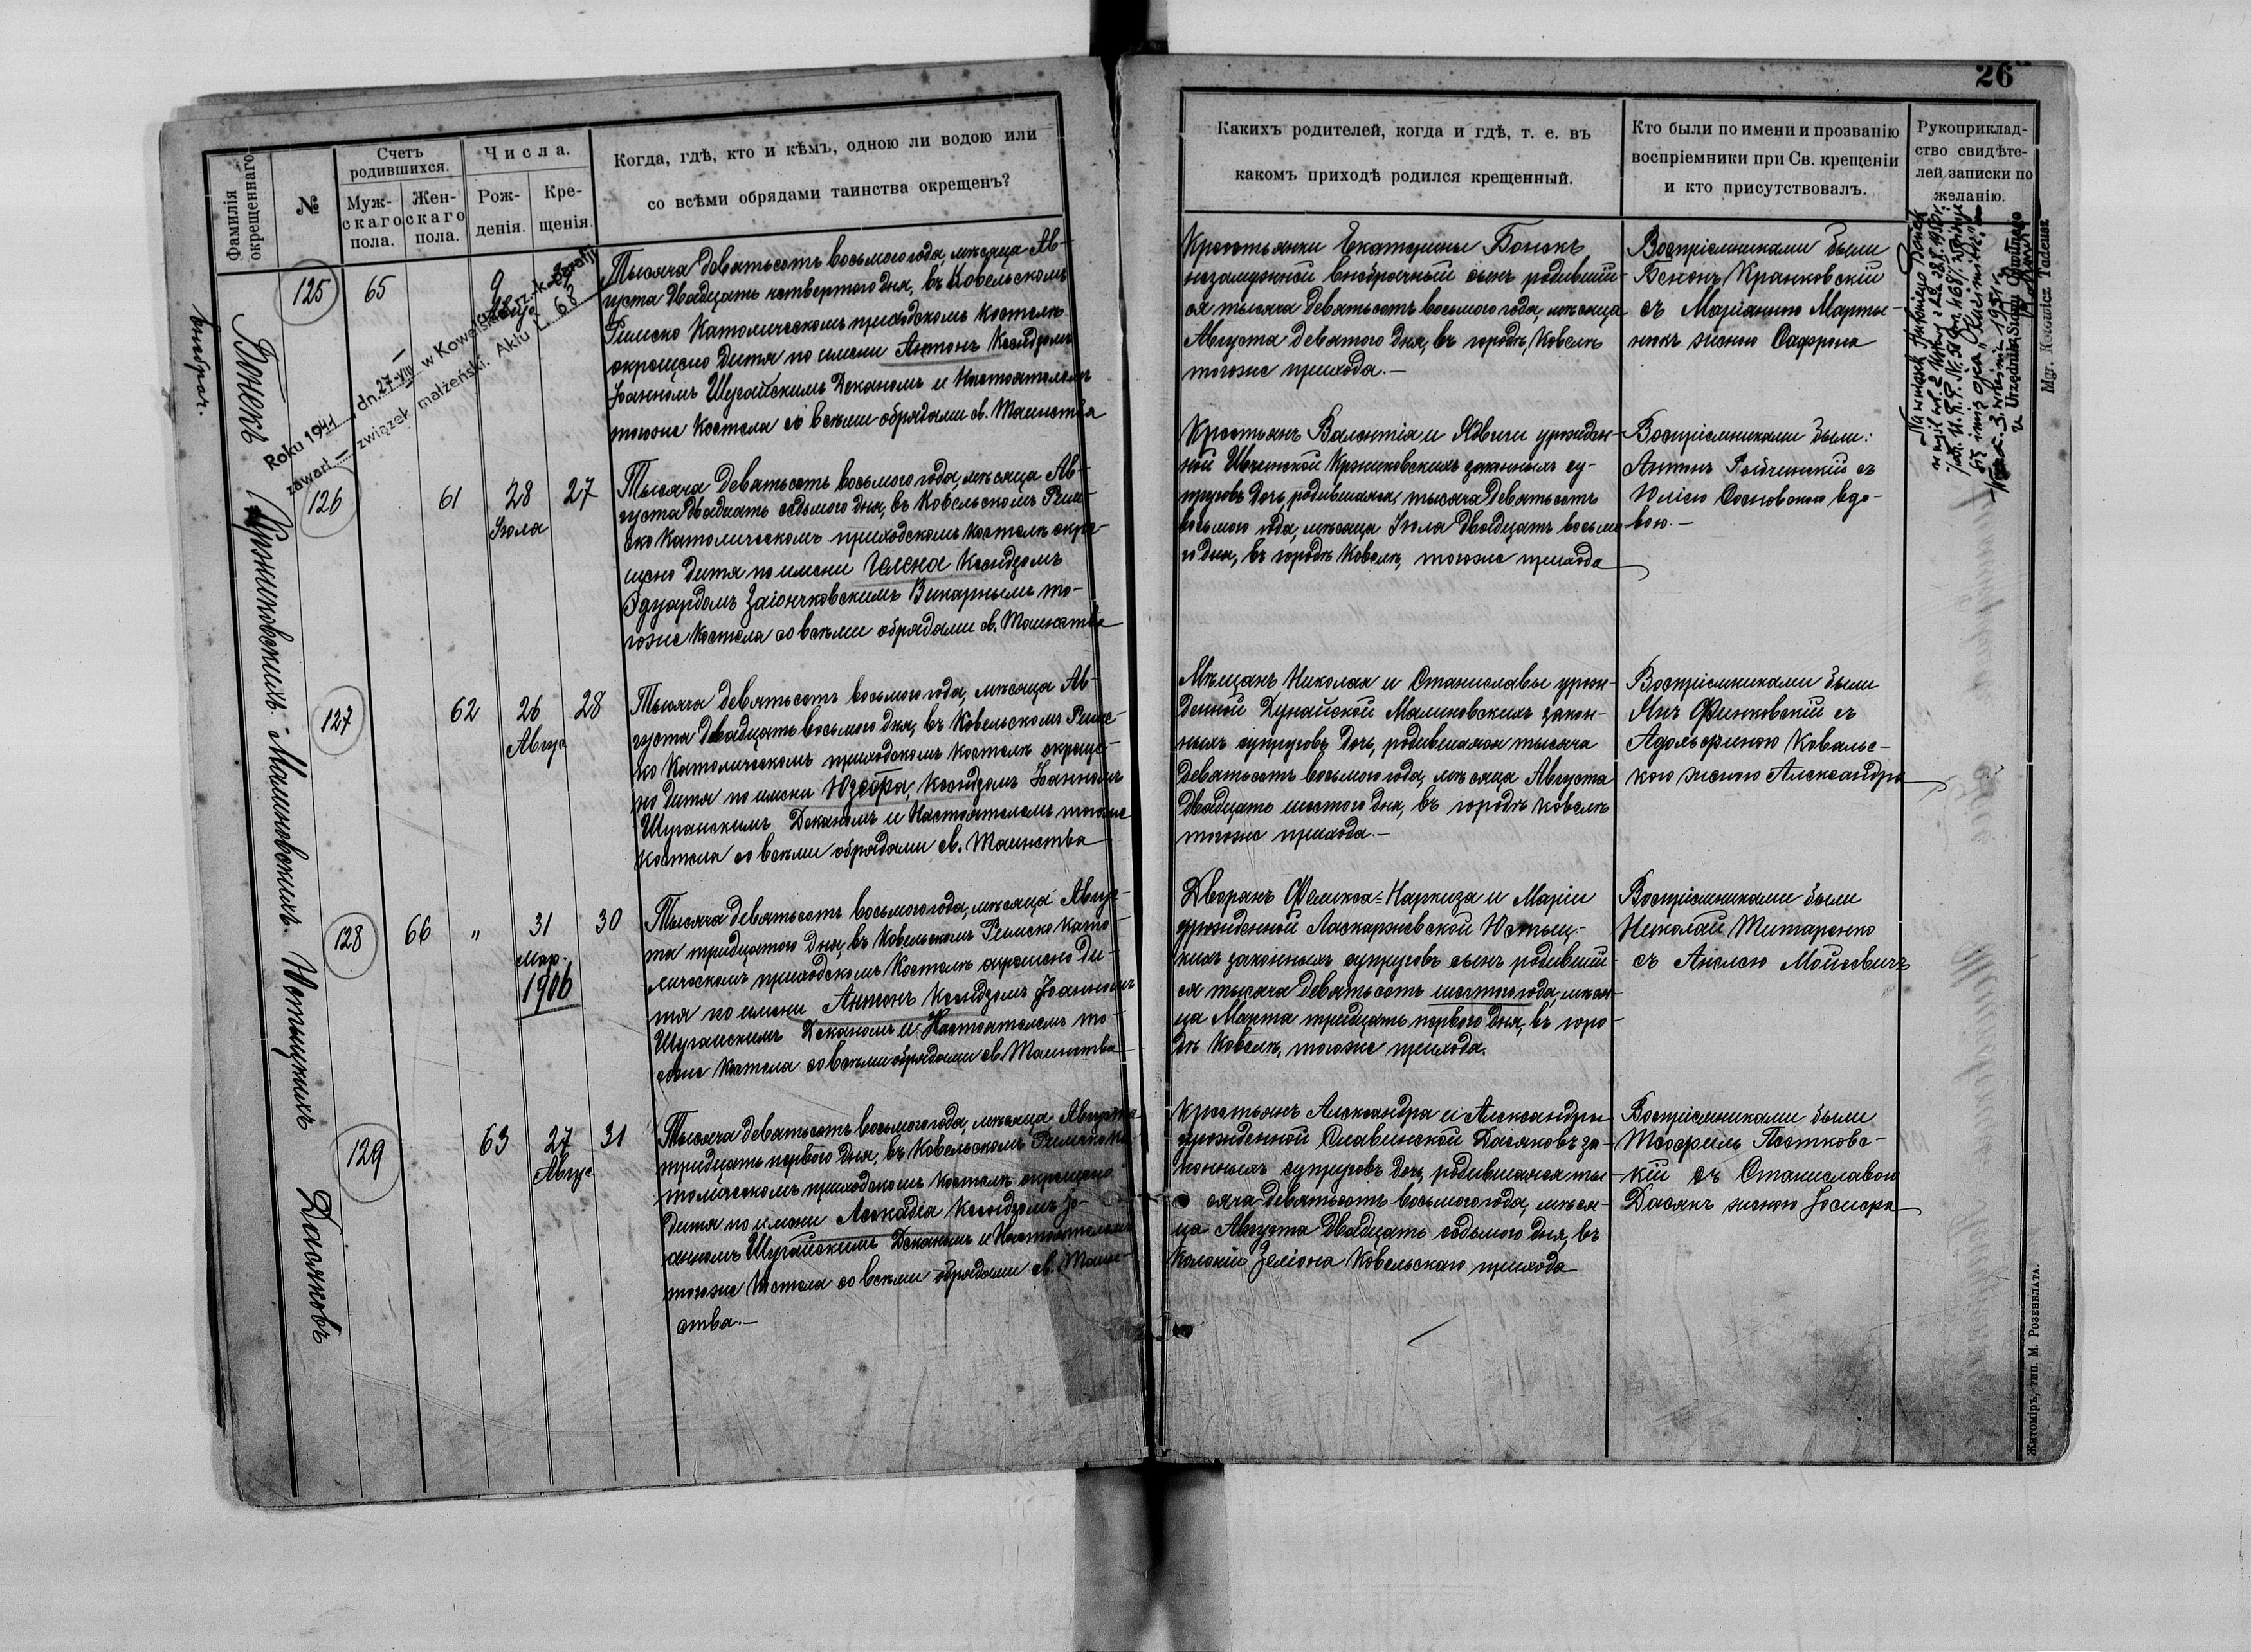 26
Фамилія окрещеннаго
№
Счетъ родившихся.
Мужскаго пола.
Женскаго пола.
Числа.
Рожденія.
Крещенія.
Когда, гдѣ, кто и кѣмъ, одною ли водою или
со всѣми обрядами таинства окрещенъ?
Какихъ родителей, когда и гдѣ, т. е. въ
какомъ приходѣ родился крещенный.
Кто были по имени и прозванію
воспріемники при Св. крещеніи
и кто присутствовалъ.
Рукоприклад-
ство свидѣте-
лей записки по
желанію.
Бонекъ
внебрач.
125
65
9
Авгу
Roku 1941 dn. 27-VIII w Kowelskiej parafji
zawarł związek małżeński. Aktu L. 68
Тысяча девятьсотъ восьмого года, мѣсяца Ав-
густа двадцать четвертого дня, въ Ковельскомъ
Римско Католическомъ приходскомъ Костелѣ
окрещено дитя по имени Антонъ Ксендзомъ
Іоанномъ Шугайскимъ Деканомъ и Настоятелемъ
тогоже Костела со всѣми обрядами св. Таинства
Крестьянки Екатерины Бонекъ
незамужней внебрачный сынъ родившій-
ся тысяча девятьсотъ восьмого года, мѣсяца
Августа девятого дня, въ городѣ Ковелѣ
тогоже прихода.—
Воспріемниками были
Зенонъ Кранковскій
съ Маріанною Марты-
нюкъ женою Сафрона
Mgr. Kosowicz Tadeusz
Кржишковскихъ
126
61
28
Іюля
27
Тысяча девятьсотъ восьмого года, мѣсяца Ав-
густа двадцать седьмого дня, въ Ковельскомъ Рим-
ско Католическомъ приходскомъ Костелѣ окре-
щено дитя по имени Гелена Ксендзомъ
Эдуардомъ Заіончковскимъ Викарнымъ то-
гоже Костела со всѣми обрядами св. Таинства
Крестьянъ Валентія и Ядвиги урожден-
ной
законныхъ су-
пруговъ дочь, родившаяся тысяча девятьсотъ
восьмого года, мѣсяца Іюля двадцать восьма-
го дня, въ городѣ Ковелѣ, тогоже прихода
Воспріемниками были:
Антонъ
съ
Юліею Сосновскою вдо-
вою.—
Малиновскихъ
127
62
26
Авгус
28
Тысяча девятьсотъ восьмого года, мѣсяца Ав-
густа двадцать восьмого дня, въ Ковельскомъ Римс-
ко Католическомъ приходскомъ Костелѣ окреще-
но дитя по имени Юзефа, Ксендзомъ Іоанномъ
Шугайскимъ Деканомъ и Настоятелемъ тогоже
Костела со всѣми обрядами св. Таинства
Мѣщанъ Николая и Станиславы урож-
денной Дунайской Малиновскихъ закон-
ныхъ супруговъ дочь, родившаяся тысяча
девятьсотъ восьмого года, мѣсяца Августа
двадцать шестого дня, въ городѣ Ковелѣ
тогоже прихода.—
Воспріемниками были
Янъ Финковскій съ
Адольфиною Ковальс-
кою женою Александра
128
66
"
31
мар.
1906
30
Тысяча девятьсотъ восьмого года, мѣсяца Авгус-
та тридцатого дня, въ Ковельскомъ Римско Като-
лическомъ приходскомъ Костелѣ окрещено ди-
тя по имени Антонъ Ксендзомъ Іоанномъ
Шугайскимъ Деканомъ и Настоятелемъ то-
гоже Костела со всѣми обрядами св. Таинства
Дворянъ Феликса-Наркиза и Маріи
урожденной Ласкаржевской
кихъ законныхъ супруговъ сынъ родившій-
ся тысяча девятьсотъ шестого года, мѣся-
ца Марта тридцать первого дня, въ горо-
дѣ Ковелѣ, тогоже прихода.
Воспріемниками были
Николай Титаренко
съ Анелею Мойсевичъ
Дасяковъ
129
63
27
Авгус
31
Тысяча девятьсотъ восьмого года, мѣсяца Августа
тридцать первого дня, въ Ковельскомъ Римско Ка-
толическомъ приходскомъ Костелѣ окрещено
дитя по имени Леокадія Ксендзомъ Іо-
анномъ Шугайскимъ Деканомъ и Настоятелемъ
тогоже Костела со всѣми обрядами св. Таин-
ства.—
Крестьянъ Александра и Александры
урожденной Славинской Дасяковъ за-
конныхъ супруговъ дочь, родившаяся ты-
сяча девятьсотъ восьмого года, мѣся-
ца Августа двадцать седьмого дня, въ
Колоніи Зеліона Ковельскаго прихода
Воспріемниками были
Теофиль Пстковс-
кій съ Станиславою
Дасякъ женою Іосифа
Житоміръ, тип. М. Розенблата.